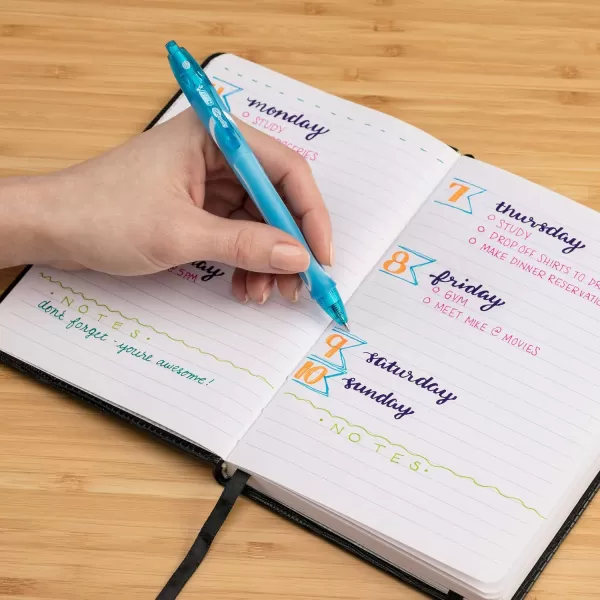 monday
STUDY
5PM
NOTES
dont forget: you're awesome!
7 thursday
STUDY
DROP OFF SHIRTS TO
MAKE DINNER RESERVATION
8 friday
GYM
MEET MIKE @ MOVIES
9 saturday
10 sunday
NOTES